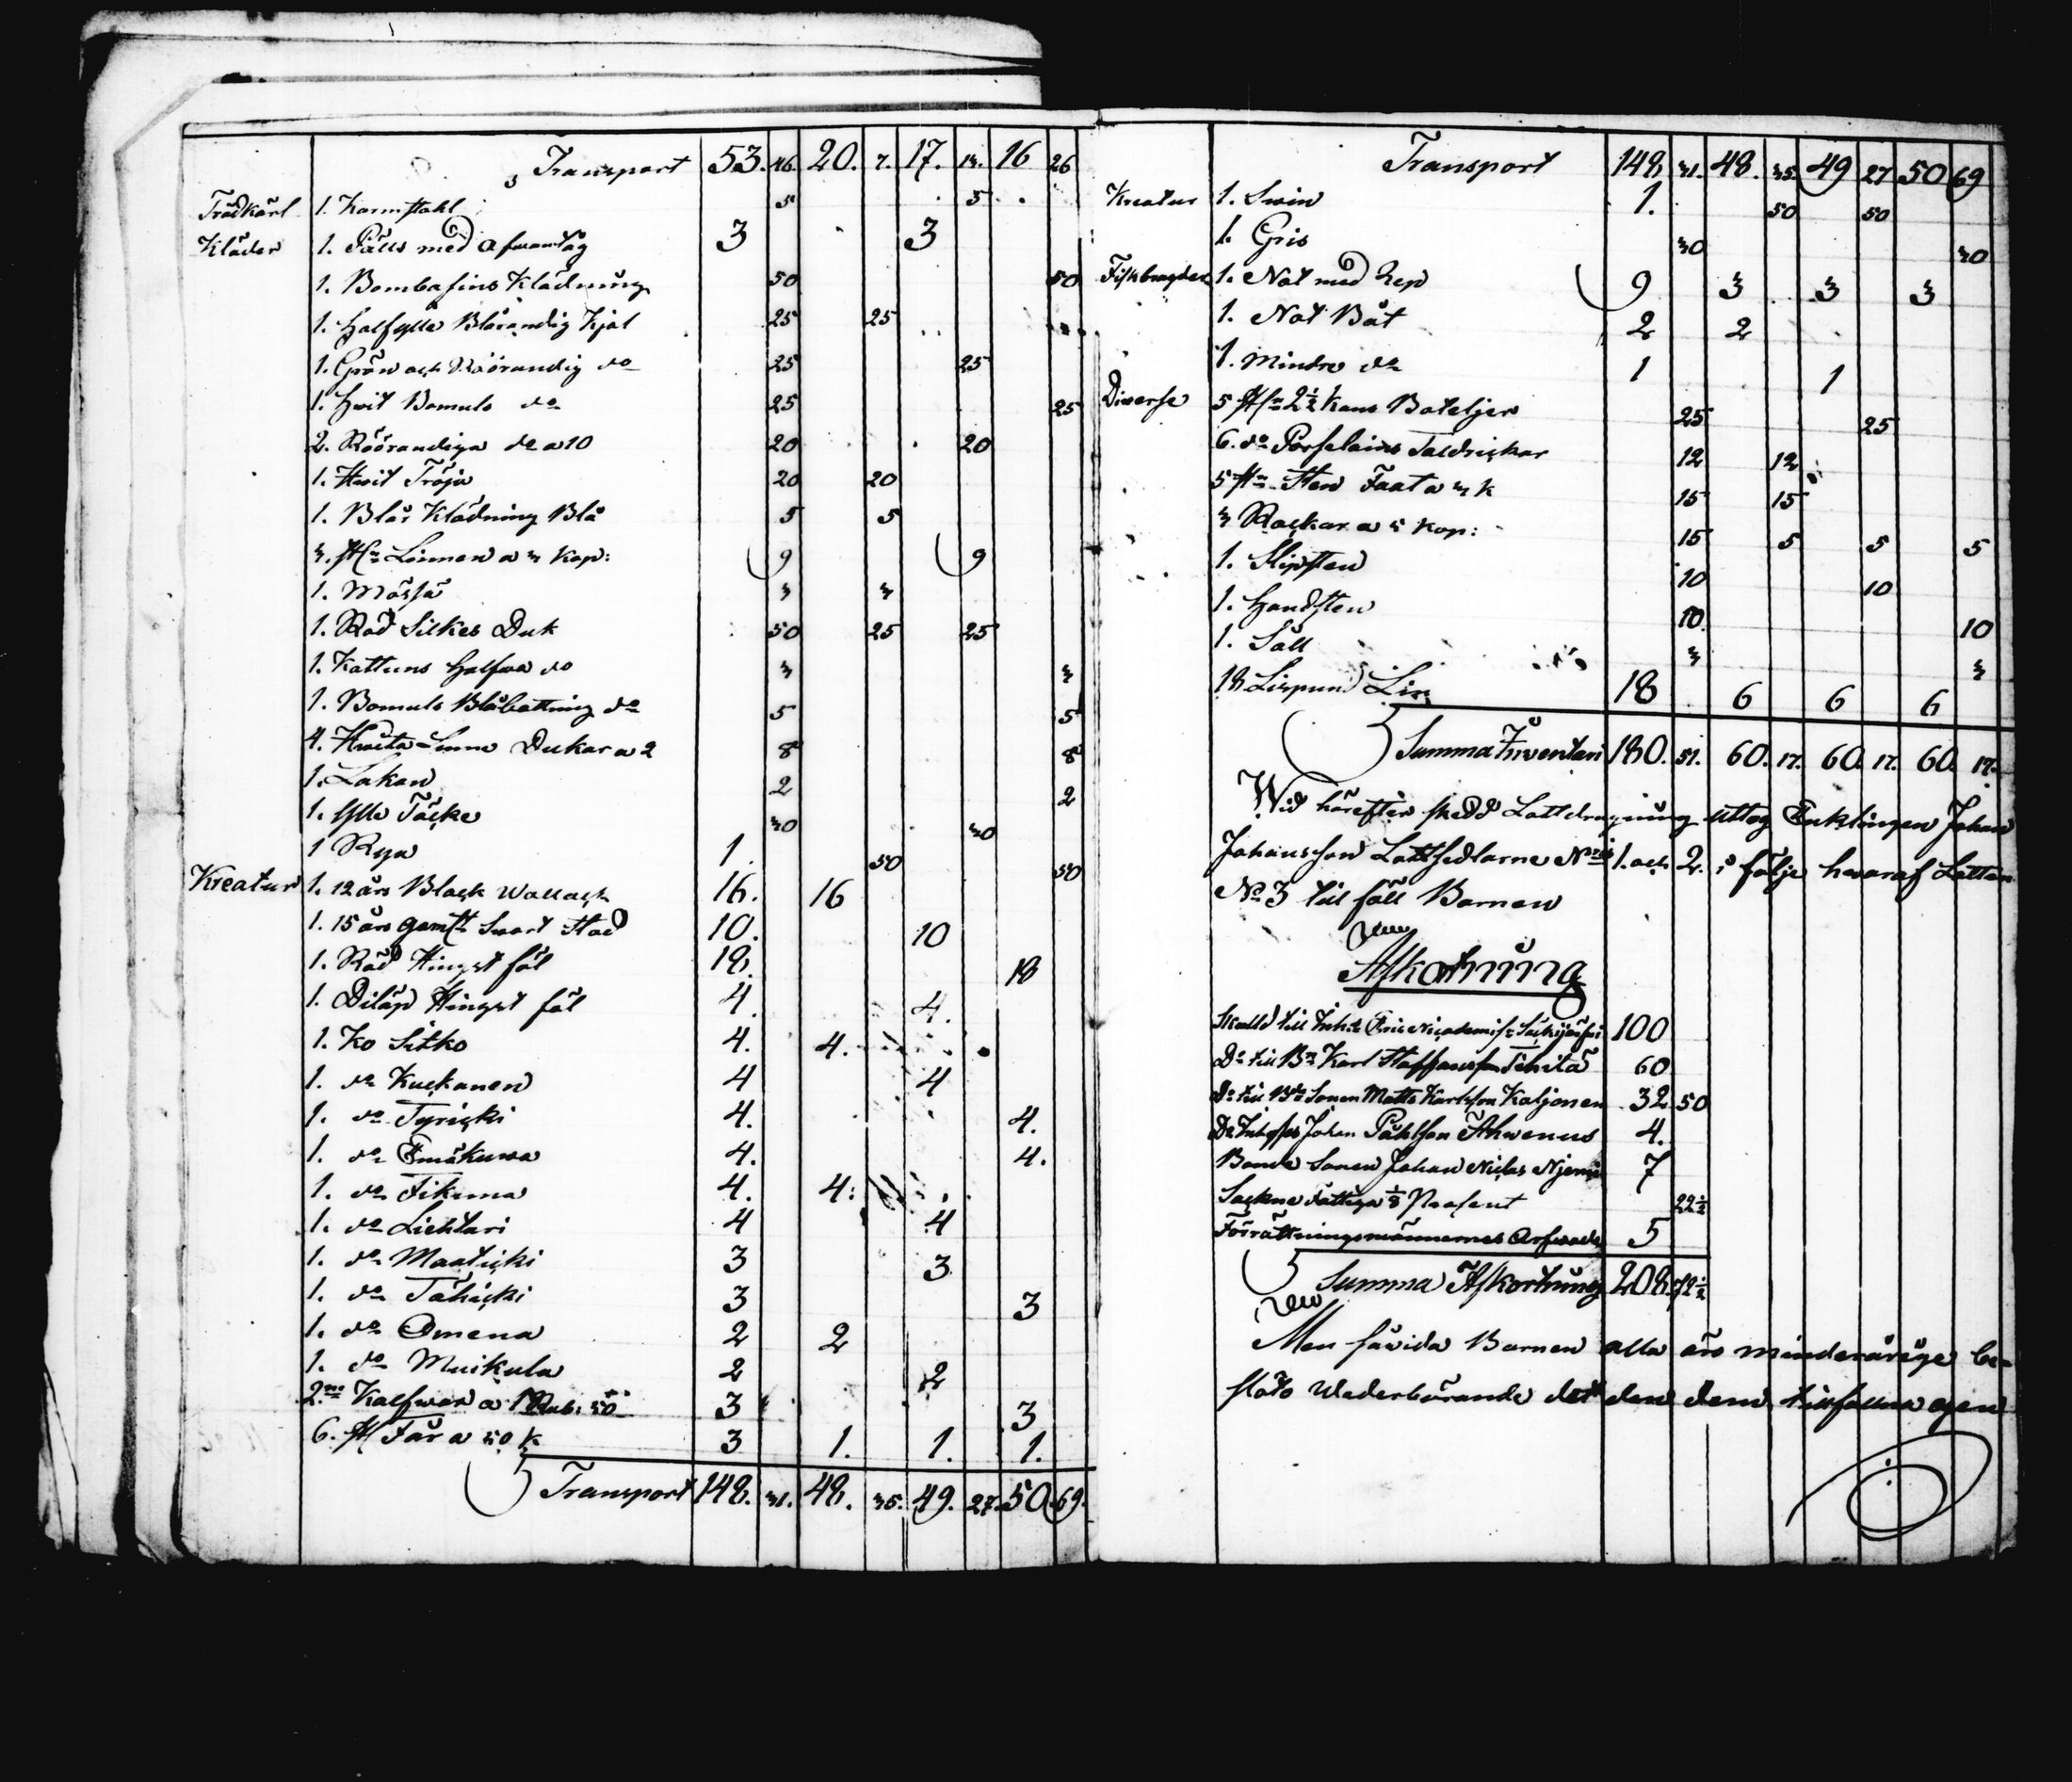 Transport 53. 46. 20. 7. 17. 14. 16 26
Trädkärl 1. Karmstohl 5 5
Kläder 1. Päls med 3 3
1. Bombasins Klädning 50 50
1. Halfylle Blårandig Kjol 25 25
1. Grön och Röörandig do 25 25
1. Hvit Bomuls do 25 25
2. Röörandiga do a 10 20 20
1. Hwit Tröja 20 20
1. Blår Klädning Blå 5 5
3. St Linnen a 3 Kop: 9 9
1. Mössa 3 3
1. Röd Silkes Duk 50 25 25
1. Kattuns Halfwa do 3 3
1. Bomuls Blåbottnig do 5 5
4. Hwita Linne Dukar a 2 8 8
1. Lakan 2 2
1. Ylle Täcke 30 30
1 Rya 1. 50 50
Kreatur 1. 12 års Black Wallach 16. 16
1. 15 års gamlt Swart Stod 10. 10
1. Röd Hingst föl 18. 18
1. Hingst föl 4. 4.
1. Ko Sitko 4. 4.
1. do Kuckanen 4 4
1. do Tyricki 4. 4.
1. do Emäkuwa 4. 4.
1. do Tikuna 4. 4.
1. do Lichtari 4 4
1. do Maaticki 3 3
1. do Tähicki 3 3
1. do Omena 2 2
1. do Muikula 2 2
2ne Kalfwar a 1 Rub: 50 3 3
6. St Får a 50 k 3 1. 1. 1.
Transport 148. 31. 48. 35. 49. 27. 50. 69.
Transport 148. 31. 48. 35. 49 27 50 69
Kreatur 1. Swin 1. 50 50
1. Gris 30 30
Fiskbragder 1. Not med Rep 9 3 3 3
1. Not Båt 2 2
1. Mindre do 1 1
Diverse 5 St 2½ Kans Boteljer 25 25
6. do Porselains Taldrickar 12 12
5 St Sten Faat a 3 k 15 15
3 Rockar a 5 Kop: 15 5 5 5
1. Slipsten 10 10
1. Handsten 10. 10
1. Såll 3 3
18 Lispund Lin 18 6 6 6
Summa Inventari 180. 51. 60. 17. 60. 17. 60. 17.
Wid härefter skedd Lottdragning uttog Enklingen Johan
Johansson Lottsedlarne 1. och 2. i följe hwaraf Lotten
No 3 till föll Barnen
Afkortning
Skuld till Eric 100
Do till Bn Karl Staffansson 60
Do till Sonen Matts Karlsson Kaljonen 32 50
Do Johan Påhlson Ahwenus 4.
Bonde Sonen Johan Niclas 7
Sockne Fattiga ⅛ Procent 22½
Förrättningsmännernes Arfwode 5
Summa Afkortning 208. 72½
Men såvida Barnen alla äro minderårige be-
slöto Wederbörande det den dem tillfallna egen